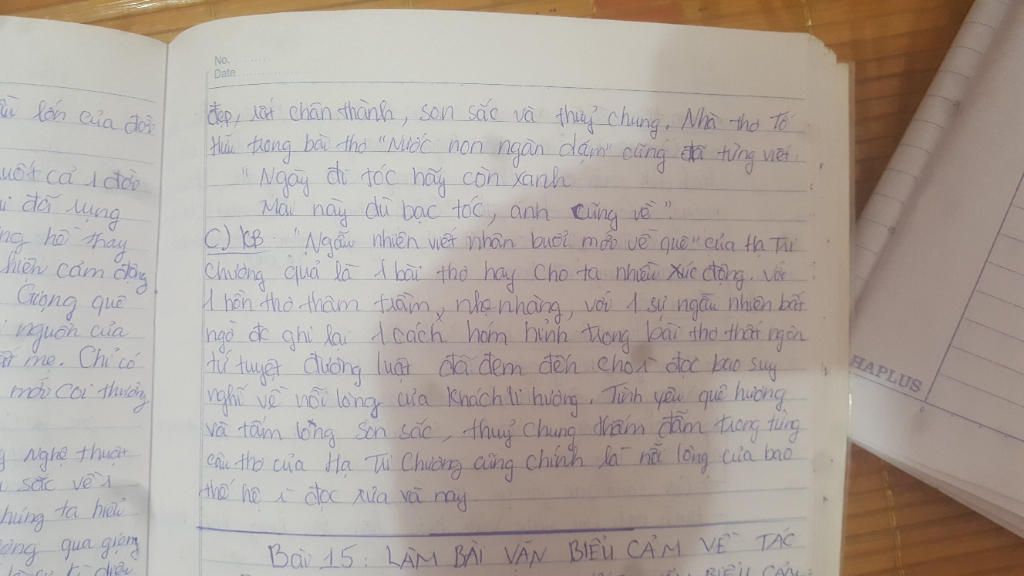 No.
Date
đẹp, rất chân thành, son sắc và thuỷ chung. Nhà thơ Tố
Hữu trong bài thơ "Nước non ngàn dặm" cũng đã từng viết.
"Ngày đi tóc hãy còn xanh
Mai này dù bạc tóc, anh cũng về".
C) KB: "Ngẫu nhiên viết nhân buổi mới về quê" của Hạ Tri
Chương quả là 1 bài thơ hay cho ta nhiều xúc động. Với
1 hồn thơ thâm trầm, nhẹ nhàng, với 1 sự ngẫu nhiên bất
ngờ đc ghi lại 1 cách hóm hỉnh trong bài thơ thất ngôn
tứ tuyệt đường luật đã đem đến cho đọc bao suy
nghĩ về nỗi lòng của khách li hương. Tình yêu quê hương
và tấm lòng son sắc, thuỷ chung thấm đẫm trong từng
câu thơ của Hạ Tri Chương cũng chính là nỗi lòng của bao
thế hệ đọc xưa và nay.
Bài 15: LÀM BÀI VĂN BIỂU CẢM VỀ TÁC
BIỂU CẢM
lớn của đời
cả 1 đời
đã rụng
hề thay
cảm động
Giọng quê
nguồn của
mẹ. Chỉ có
mới coi thường
nghệ thuật
sắc về
chúng ta hiểu
qua giọng
HAPLUS